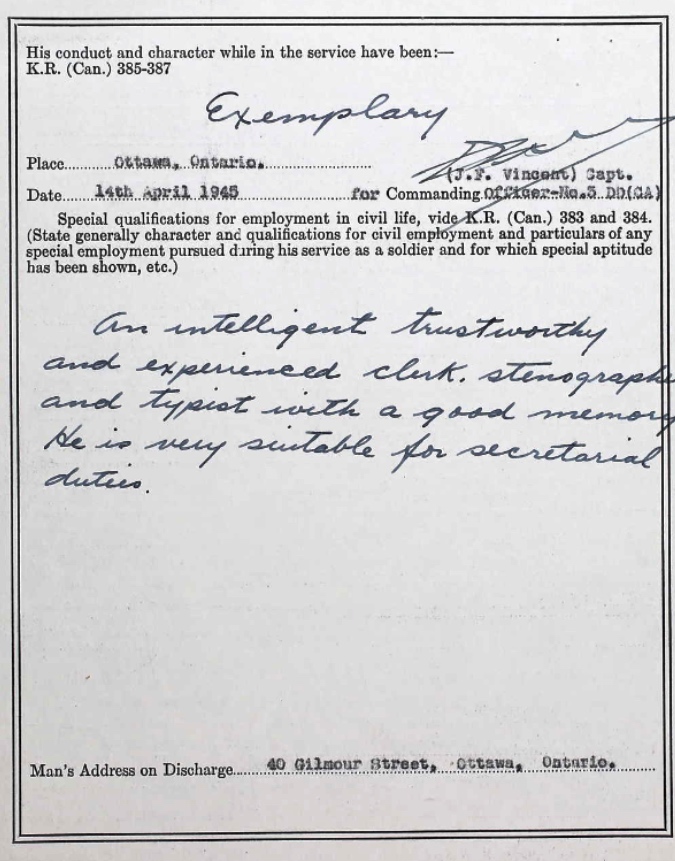 His conduct and character while in the service have been:—
K.R. (Can.) 385-387
Exemplary
Place Ottawa, Ontario.
(J.F. Vincent) Capt.
Date 14th April 1945 for Commanding Officer-No.3 DD(CA)
Special qualifications for employment in civil life, vide K.R. (Can.) 383 and 384.
(State generally character and qualifications for civil employment and particulars of any
special employment pursued during his service as a soldier and for which special aptitude
has been shown, etc.)
An intelligent trustworthy
and experienced clerk. stenographe
and typist with a good memory
He is very suitable for secretarial
duties.
Man's Address on Discharge 40 Gilmour Street, Ottawa, Ontario.